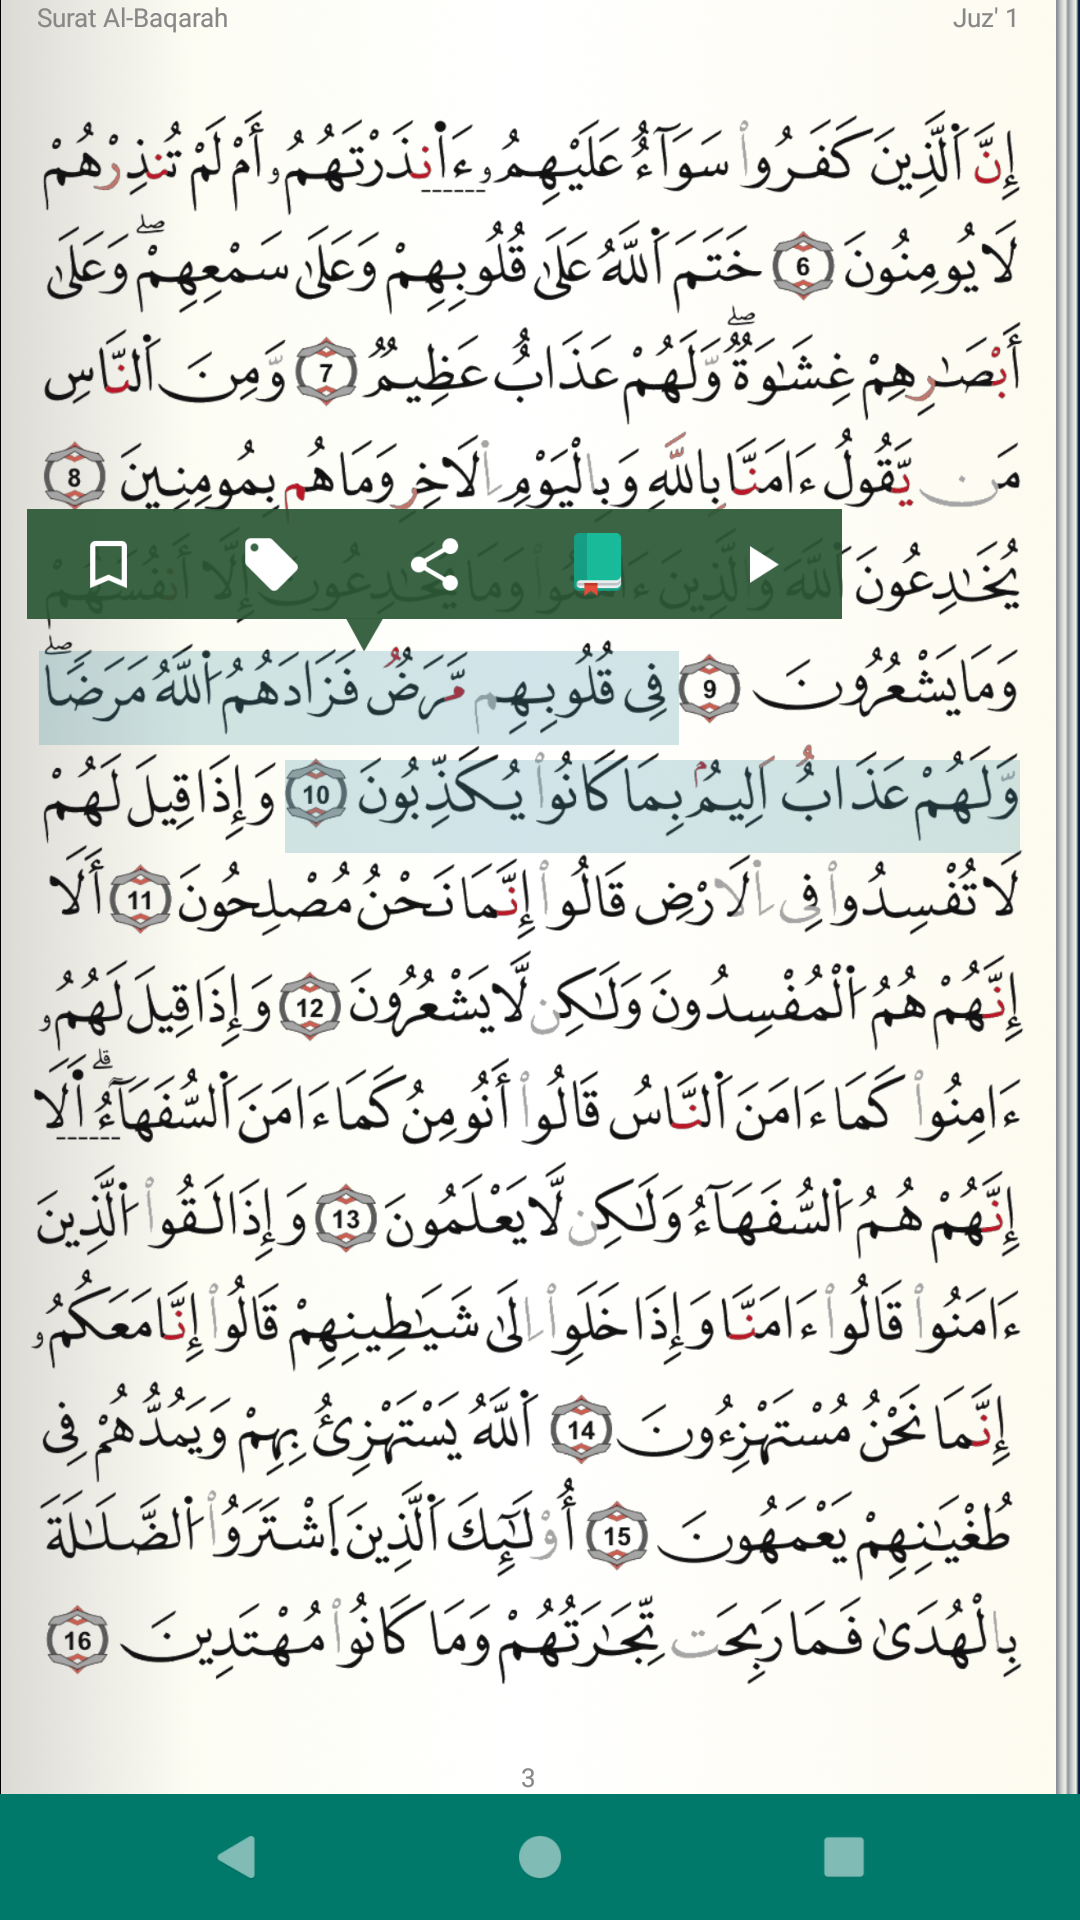 Surat Al-Baqarah
Juz' 1
إِنَّ اَ۬لذِينَ كَفَرُواْ سَوَآءٌ عَلَيْهِمُۥٓ ءَا۬نذَرْتَهُمُۥٓ أَمْ لَمْ تُنذِرْهُمْ
لَا يُومِنُونَ 6 خَتَمَ اَ۬للَّهُ عَلَىٰ قُلُوبِهِمْ وَعَلَىٰ سَمْعِهِمْۖ وَعَلَىٰ
أَبْصَٰرِهِمْ غِشَٰوَةٌۖ وَلَهُمْ عَذَابٌ عَظِيمٌ 7 وَمِنَ اَ۬لنَّاسِ
مَنْ يَّقُولُ ءَامَنَّا بِاللَّهِ وَبِالْيَوْمِ اِ۬لَاخِرِ وَمَا هُم بِمُومِنِينَ 8
يُخَٰدِعُونَ اَ۬للَّهَ وَالذِينَ ءَامَنُواْ وَمَا يُخَٰدِعُونَ إِلَّآ أَنفُسَهُمْ
وَمَا يَشْعُرُونَ 9 فِى قُلُوبِهِم مَّرَضٌ فَزَادَهُمُ اُ۬للَّهُ مَرَضًاۖ
وَلَهُمْ عَذَابٌ اَلِيمٌۢ بِمَا كَانُواْ يُكَذِّبُونَ 10 وَإِذَا قِيلَ لَهُمْ
لَا تُفْسِدُواْ فِى اِ۬لَارْضِ قَالُوٓاْ إِنَّمَا نَحْنُ مُصْلِحُونَ 11 أَلَآ
إِنَّهُمْ هُمُ اُ۬لْمُفْسِدُونَ وَلَٰكِن لَّا يَشْعُرُونَ 12 وَإِذَا قِيلَ لَهُمُۥٓ
ءَامِنُواْ كَمَآ ءَامَنَ اَ۬لنَّاسُ قَالُوٓاْ أَنُومِنُ كَمَآ ءَامَنَ اَ۬لسُّفَهَآءُۗ اَ۬لَآ
إِنَّهُمْ هُمُ اُ۬لسُّفَهَآءُ وَلَٰكِن لَّا يَعْلَمُونَ 13 وَإِذَا لَقُواْ اُ۬لذِينَ
ءَامَنُواْ قَالُوٓاْ ءَامَنَّا وَإِذَا خَلَوِاْ اِلَىٰ شَيَٰطِينِهِمْ قَالُوٓاْ إِنَّا مَعَكُمُۥٓ
إِنَّمَا نَحْنُ مُسْتَهْزِءُونَ 14 اَ۬للَّهُ يَسْتَهْزِئُ بِهِمْ وَيَمُدُّهُمْ فِى
طُغْيَٰنِهِمْ يَعْمَهُونَ 15 أُوْلَٰٓئِكَ اَ۬لذِينَ اَ۪شْتَرَوُاْ اُ۬لضَّلَٰلَةَ
بِالْهُدَىٰ فَمَا رَبِحَت تِّجَٰرَتُهُمْ وَمَا كَانُواْ مُهْتَدِينَ 16
3